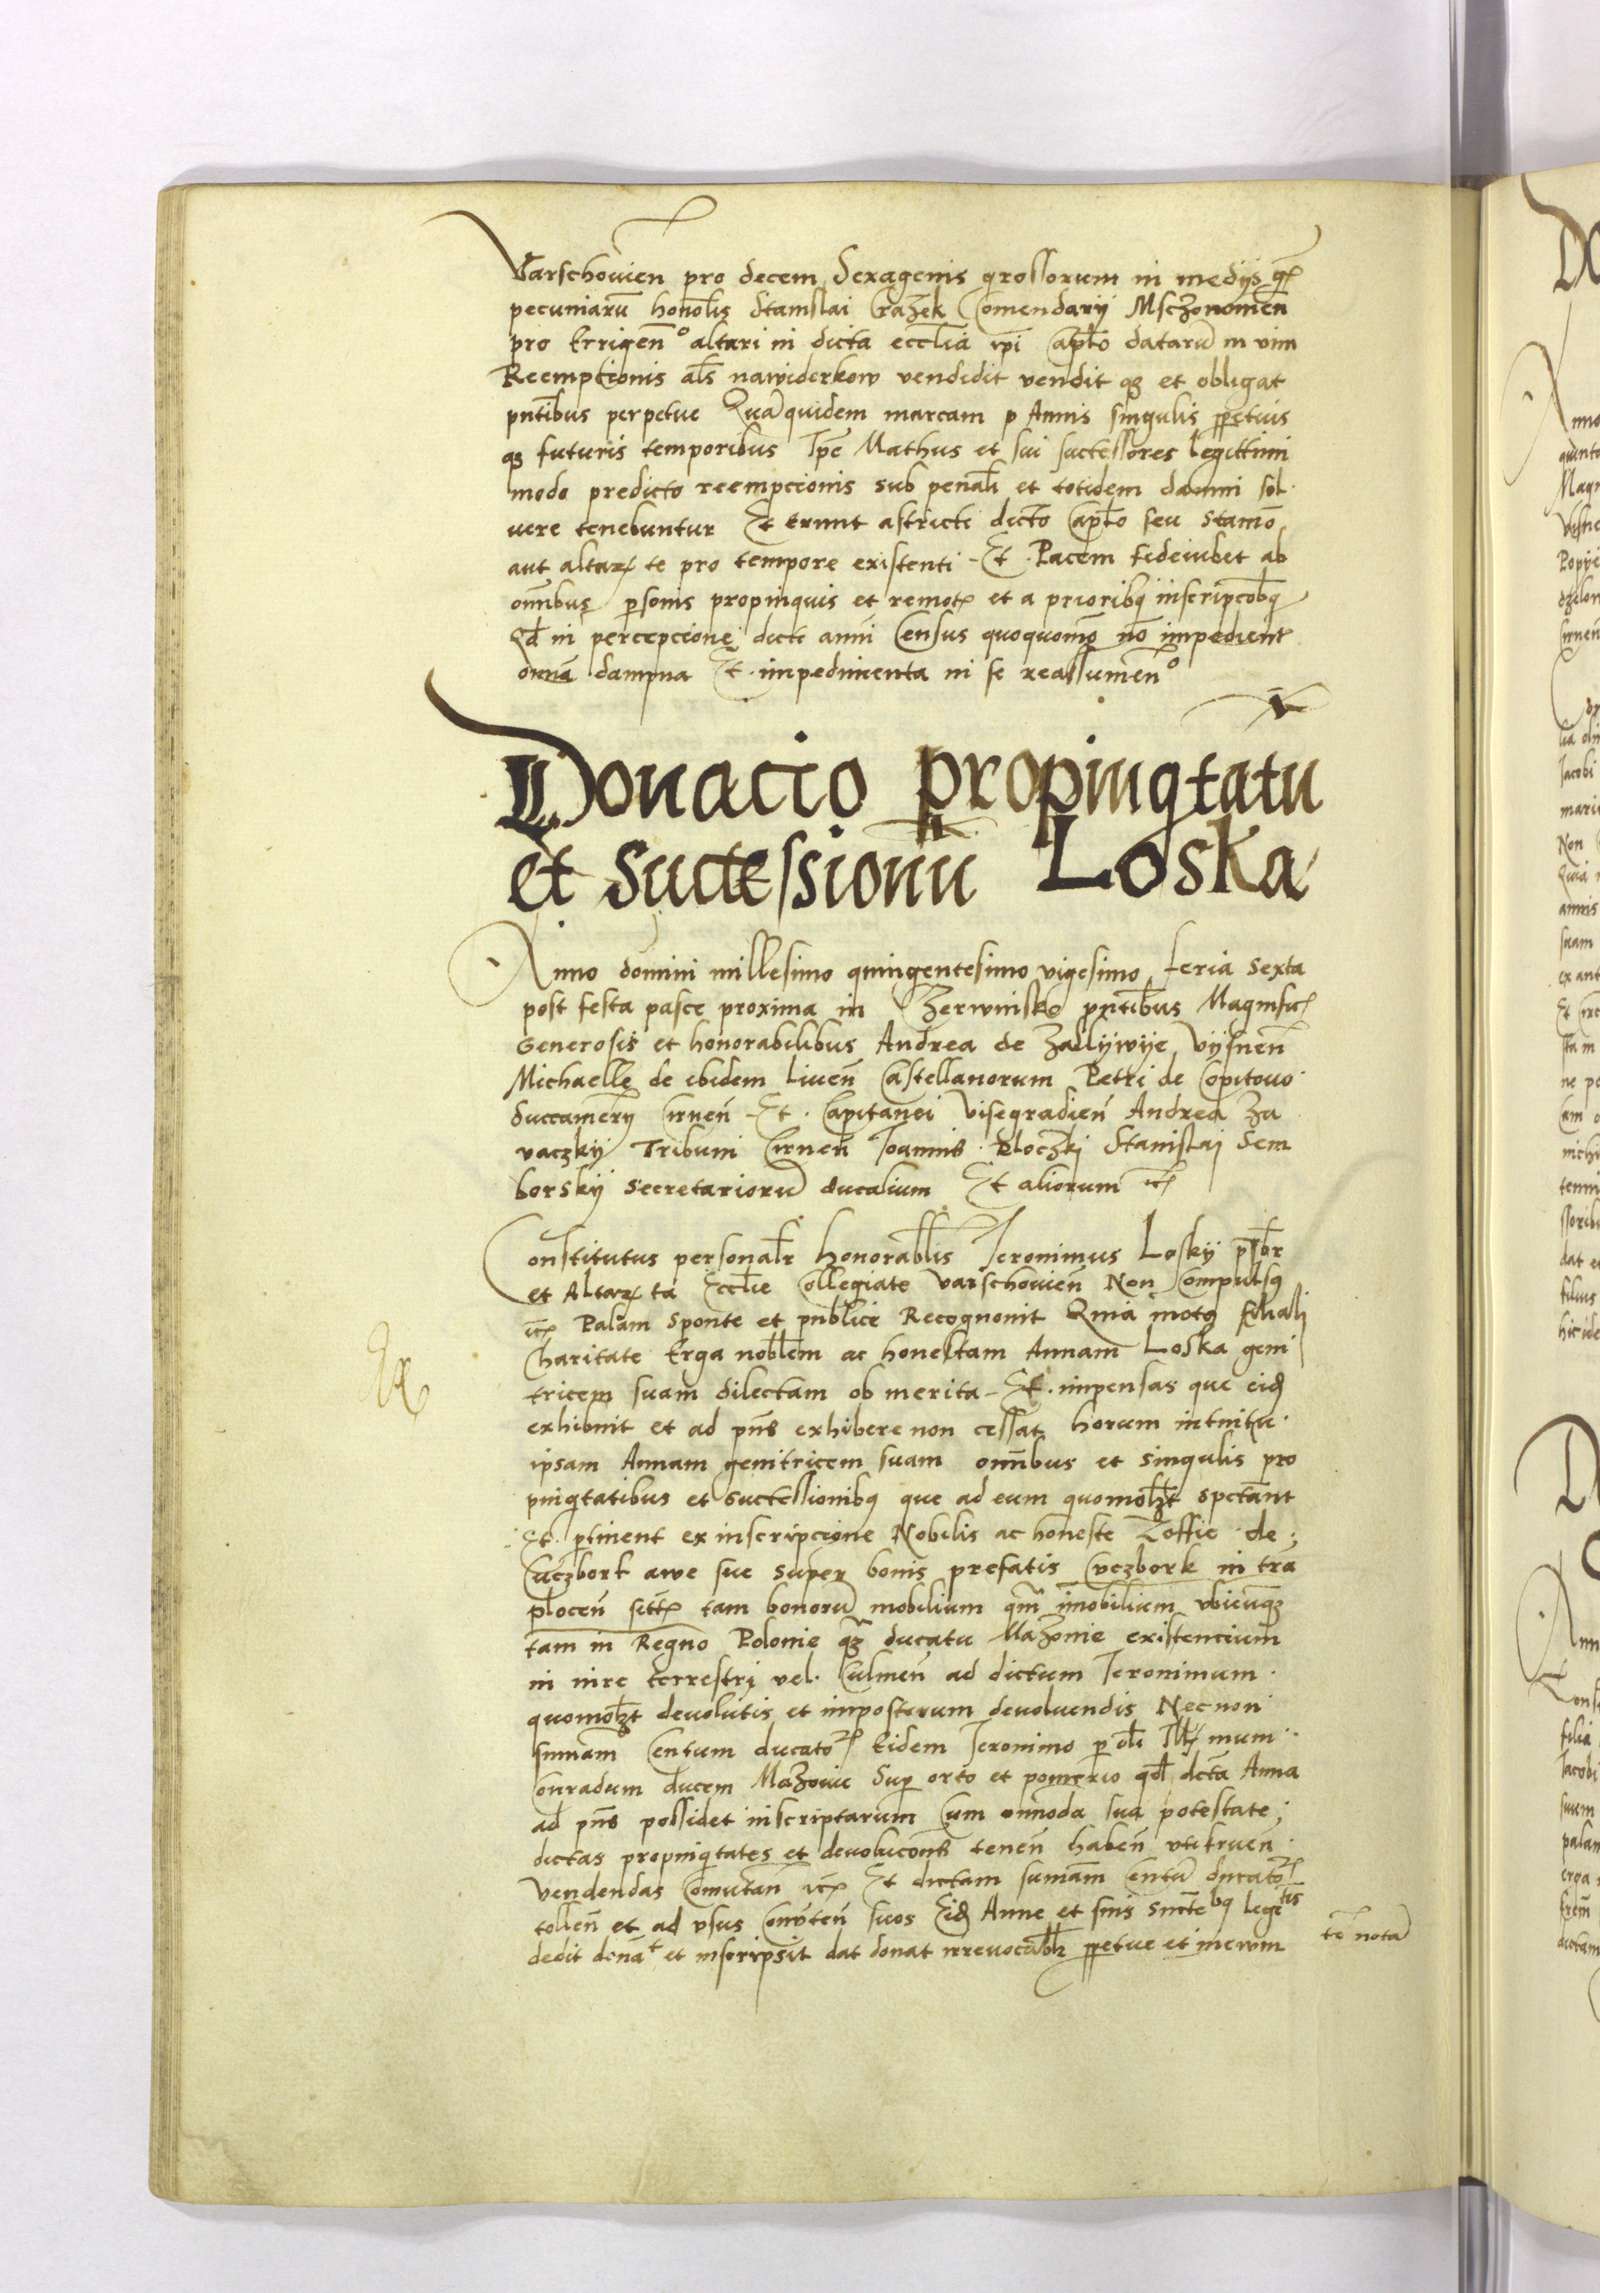 Varschovien pro decem Sexagenis grossorum in medijs
pecuniarũ honolis Stanislai Crazek Comendarij Msczonomen
pro Errigenº altari in dicta eccłia datarũ in vim
Reempcionis als nawiderkow vendidit vendit qz et obligat
pntibus perpetue Quamquidem marcam p Annis singulis ppetuis
qz futuris temporibus Ipe Mathus et sui successores legittimi
modo predicto reempcionis sub penali et totidem damni sol
uere tenebuntur Et erunt astricti dicto seu Stanisº
aut altarzte pro tempore existenti Et Pacem fideiubet ab
omnibus personis propinquis et remotz et a prioribq inscripcobq
Qd in percepcione dicti anni Census quoquomõ nõ impedient
omnã dampna Et impedimenta in se reassumenº
Donacio propinqtatũ
et Successionũ Loska
Anno domini millesimo quingentesimo vigesimo feria sexta
post festa pasce proxima in Zerwinsko pntibus Magnificz
Generosis et honorabilibus Andrea de Zallijwije Vijsnen
Michaelle de ibidem Liuen Castellanorum Petri de Copitouo
succamerij Cirnen Et Capitanei Visegradien Andrea Za
vaczkij Tribuni Cirnen Joannis Ploczkj Stanislaj Sem
borskij secretariorũ ducalium Et aliorum etcz
Constitutus personalr Honorablis Jeronimus Loskij psbr
et Altarzta Eccłie Collegiate Varschouien Non Compulsq
etcz Palam sponte et publice Recognouit Quia motq filialj
Charitate Erga noblem ac honestam Annam Loska geni
tricem suam dilectam ob merita Et impensas que eid
exhibuit et ad pns exhibere non cessat horum intuitu
ipsam Annam genitricem suam omnibus et singulis pro
pinqtatibus et successionibq que ad eum quomolzt spctant
Et ptinent ex inscripcione Nobilis ac honeste Zoffie de
Cuczbork awe sue super bonis prefatis Cuczbork in tra
plocen sittz tam bonorũ mobilium qm imobilium vbicuqz
tam in Regno Polonie qz ducatu Mazouie existencium
in iure terrestri vel Culmen ad dictum Jeronimum
quomolzt deuolutis et imposterum deuoluendis Necnon
sumam Centum ducatoz Eidem Jeronimo p oli Illmum
Conradum ducem Mazouie Sup orto et pomerio qd dcta Anna
ad pns possidet inscriptarum Cum omnoda sua potestate
dictas propinqtates et deuolucons tenen haben vtifruen
Vendendas Comutan etcz Et dictam sumam Centũ ducatoz
tollen et ad vsus Conuten suos Eid Anne et suis succebq legitis
dedit donat et inscripsit dat donat irreuocablr ppetue et in ewm